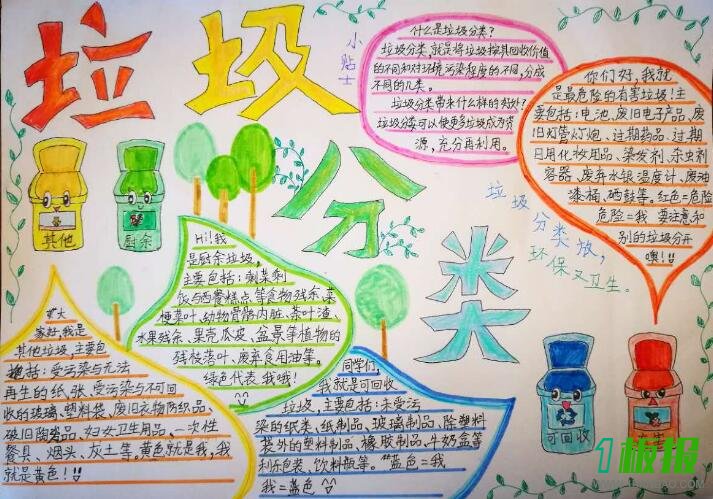 垃圾
分
类
小贴士
什么是垃圾分类?
垃圾分类,就是将垃圾按其回收价值
的不同和对环境污染程度的不同,分成
不同的几类。
垃圾分类带来什么样的好处?
垃圾分类可以使更多垃圾成为资
源,充分再利用。
你们好,我就
是最危险的有害垃圾!主
要包括:电池、废旧电子产品、废
旧灯管灯炮、过期药品、过期
日用化妆用品、染发剂、杀虫剂
容器、废弃水银温度计、废油
漆桶、硒鼓等。红色=危险
危险=我 要注意和
别的垃圾分开
噢!
垃圾
分类放,
环保又卫生。
其他
厨余
Hi!我
是厨余垃圾,
主要包括:剩菜剩
饭与西餐糕点等食物残余、菜
梗菜叶、动物骨骼内脏、茶叶渣、
水果残余、果壳瓜皮、盆景等植物的
残枝落叶、废弃食用油等。
绿色代表我哦!
大
家好,我是
其他垃圾,主要包
括:受污染与无法
再生的纸张、受污染与不可回
收的玻璃、塑料袋、废旧衣物纺织品、
破旧陶瓷品、妇女卫生用品、一次性
餐具、烟头、灰土等。黄色就是我,我
就是黄色!
同学们,
我就是可回收
垃圾,主要包括:未受污
染的纸类、纸制品、玻璃制品、除塑料
袋外的塑料制品、橡胶制品、牛奶盒等
利乐包装、饮料瓶等。蓝色=我
我=蓝色
可回收
板报